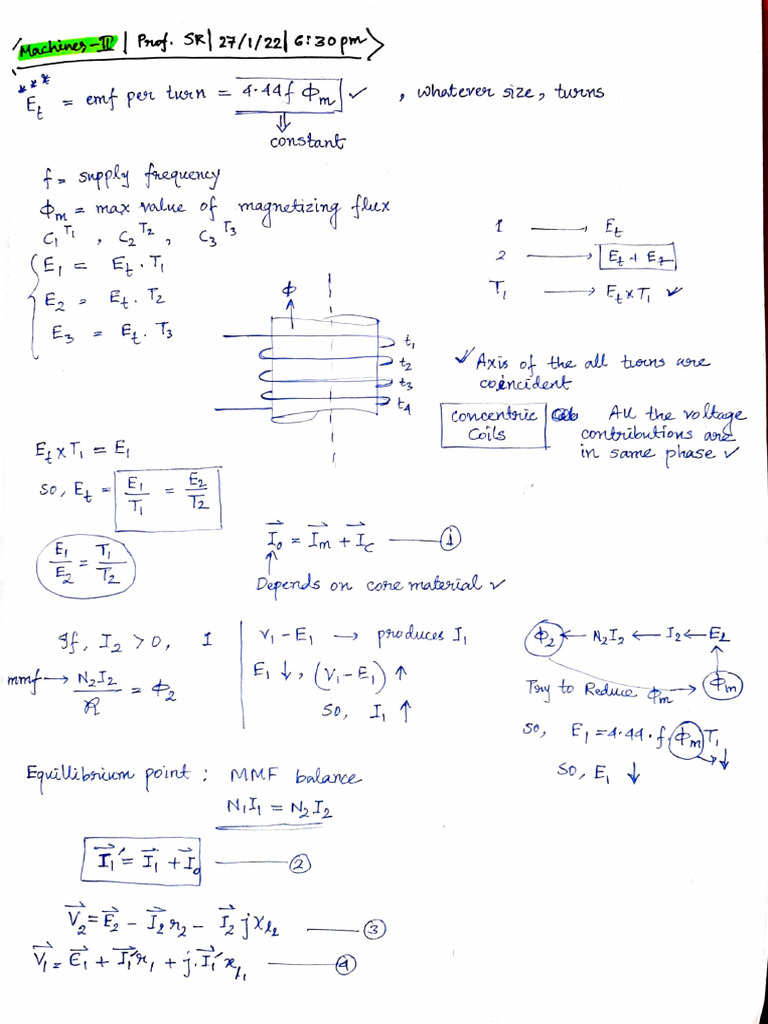 Machines-III | Prof. SR | 27/1/22 | 6:30pm
*** E_t = emf per turn = 4.44f Φ_m ✓ , whatever size, turns
⇓
constant
f = supply frequency
Φ_m = max value of magnetizing flux
C_1^{T_1} , C_2^{T_2} , C_3^{T_3}
E_1 = E_t . T_1
E_2 = E_t . T_2
E_3 = E_t . T_3
1 → E_t
2 → E_t + E_t
T_1 → E_t × T_1 ✓
Φ
t_1
t_2
t_3
t_4
✓ Axis of the all turns are
coincident
Concentric
Coils
All the voltage
contributions are
in same phase ✓
E_t × T_1 = E_1
so, E_t = E_1/T_1 = E_2/T_2
E_1/E_2 = T_1/T_2
I_0 = I_m + I_c — ①
Depends on core material ✓
If, I_2 > 0, I
mmf → N_2I_2/R = Φ_2
V_1 - E_1 → produces I_1
E_1 ↓, (V_1 - E_1) ↑
so, I_1 ↑
Φ_2 ← N_2I_2 ← I_2 ← E_2
Try to Reduce Φ_m → Φ_m
so, E_1 = 4.44 . f . Φ_m T_1
so, E_1 ↓
Equillibrium point : MMF balance
N_1I_1 = N_2I_2
I_1' = I_1 + I_0 — ②
V_2 = E_2 - I_2 r_2 - I_2 j x_{l2} — ③
V_1 = E_1 + I_1' r_1 + j . I_1' x_{l1} — ④